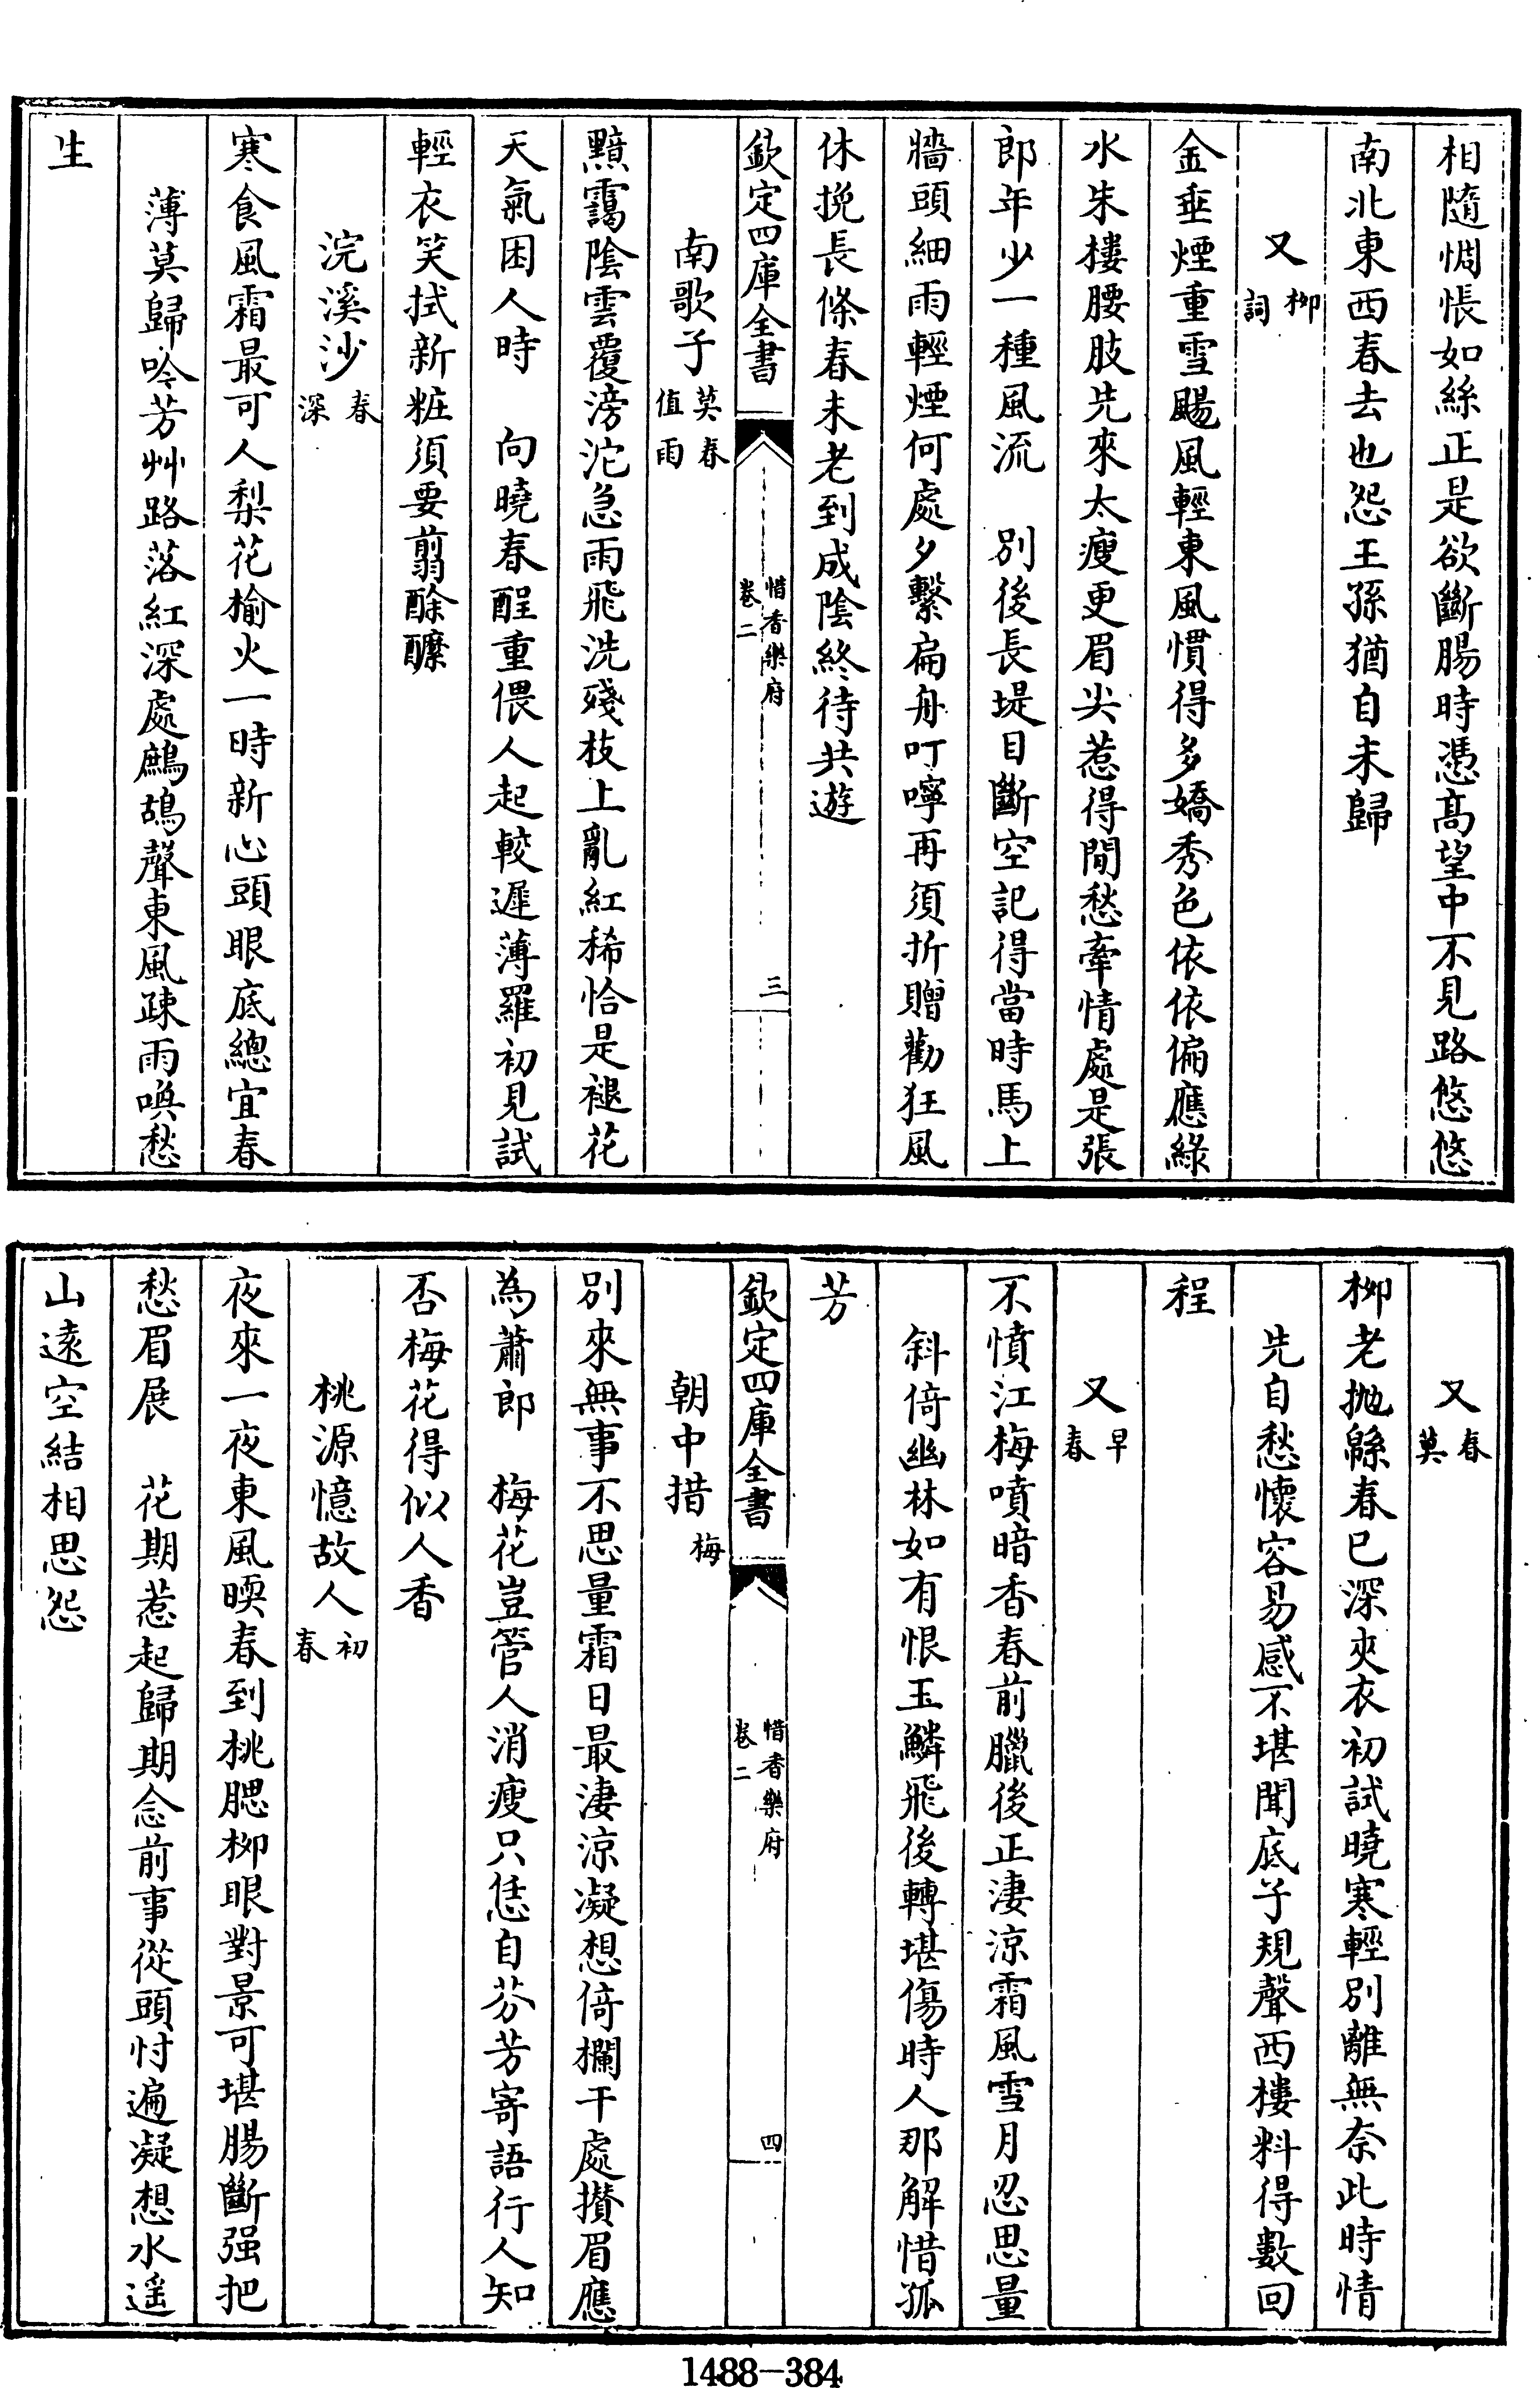 相隨惆悵如絲正是欲斷腸時憑髙望中不見路悠悠
南北東西春去也怨王孫猶自未歸
又柳詞
金垂煙重雪颺風輕東風慣得多嬌秀色依依偏應綠
水朱樓腰肢先來太瘦更眉尖惹得閒愁牽情處是張
郎年少一種風流　別後長堤目斷空記得當時馬上
牆頭細雨輕煙何處夕繫扁舟叮嚀再須折贈勸狂風
休挽長條春未老到成陰終待共遊
欽定四庫全書
惜香樂府
卷二
三
南歌子莫春值雨
黯靄陰雲覆滂沱急雨飛洗殘枝上亂紅稀恰是褪花
天氣困人時　向曉春酲重偎人起較遲薄羅初見試
輕衣笑拭新粧須要翦酴醿
浣溪沙春深
寒食風霜最可人梨花榆火一時新心頭眼底總宜春
薄莫歸吟芳艸路落紅深處鷓鴣聲東風疎雨喚愁
生
又春莫
柳老抛緜春已深夾衣初試曉寒輕別離無奈此時情
先自愁懷容易感不堪聞底子規聲西樓料得數回
程
又早春
不憤江梅噴暗香春前臘後正淒涼霜風雪月忍思量
斜倚幽林如有恨玉鱗飛後轉堪傷時人那解惜孤
芳
欽定四庫全書
惜香樂府
卷二
四
朝中措梅
別來無事不思量霜日最淒涼凝想倚欄干處攅眉應
為蕭郎　梅花豈管人消瘦只恁自芬芳寄語行人知
否梅花得似人香
桃源憶故人初春
夜來一夜東風暎春到桃腮柳眼對景可堪腸斷强把
愁眉展　花期惹起歸期念前事從頭忖遍凝想水遥
山遠空結相思怨
1488-384